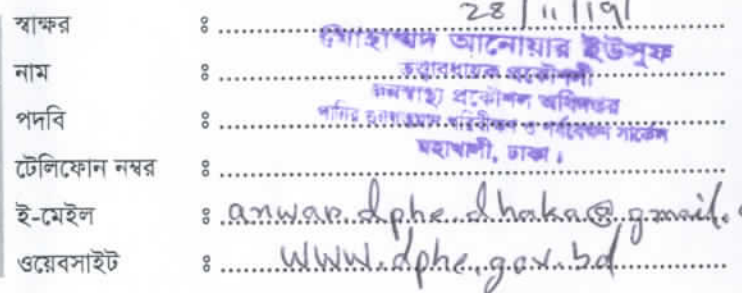 28/11/19
স্বাক্ষর ঃ
মোহাম্মদ আনোয়ার ইউসুফ
নাম ঃ
তত্ত্বাবধায়ক প্রকৌশলী
জনস্বাস্থ্য প্রকৌশল অধিদপ্তর
পদবি ঃ
পানির গুণগতমান পরিবীক্ষণ ও পর্যবেক্ষণ সার্কেল
মহাখালী, ঢাকা।
টেলিফোন নম্বর ঃ
ই-মেইল ঃ anwar.dphe.dhaka@gmail.
ওয়েবসাইট ঃ www.dphe.gov.bd